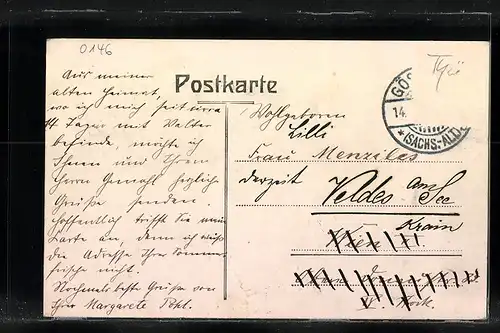 0146
Postkarte
Aus meiner
alten Heimat,
wo ich mich seit circa
14 Tagen mit Walter
befinde, möchte ich
Ihnen und Ihrem
Herrn Gemahl herzliche
Grüße senden.
Hoffentlich trifft Sie meine
Karte an, denn ich weiß
die Adresse Ihrer Sommer
frische nicht.
Nochmals beste Grüße von
Ihrer Margarete Pohl.
GÖS
14.
* (SACHS.-ALTD.
Wohlgeboren
Lilli
Frau Menziles
derzeit
Veldes am See
Krain
Wien